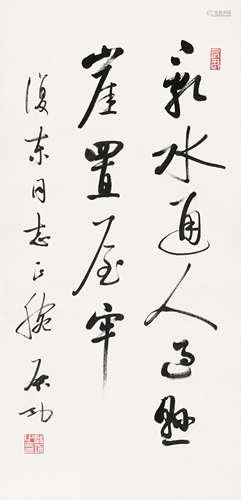 乱水通人过悬
崖置屋牢
復东同志正腕 启功